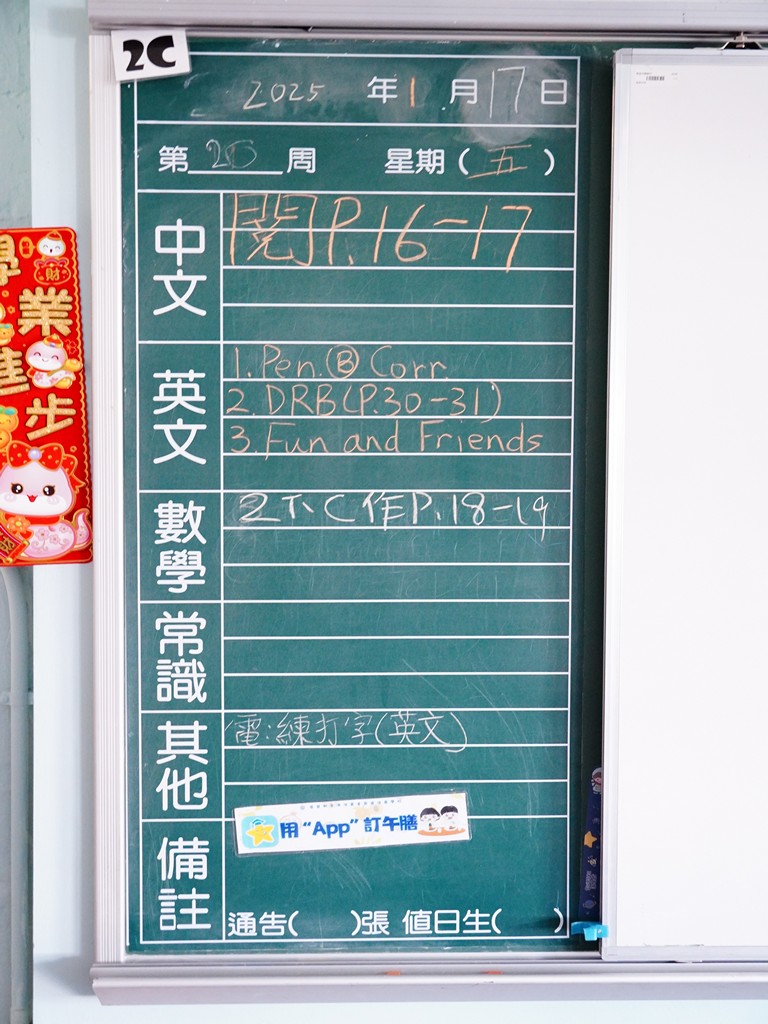 2C
2025 年 1 月 17 日
第 20 周 星期（五）
中文
閱P.16-17
英文
1. Pen. Ⓑ Corr.
2. DRB(P.30-31)
3. Fun and Friends
數學
2下C作P.18-19
常識
其他
電:練打字(英文)
備註
用“App”訂午膳
通告( )張 值日生( )
學業進步
財